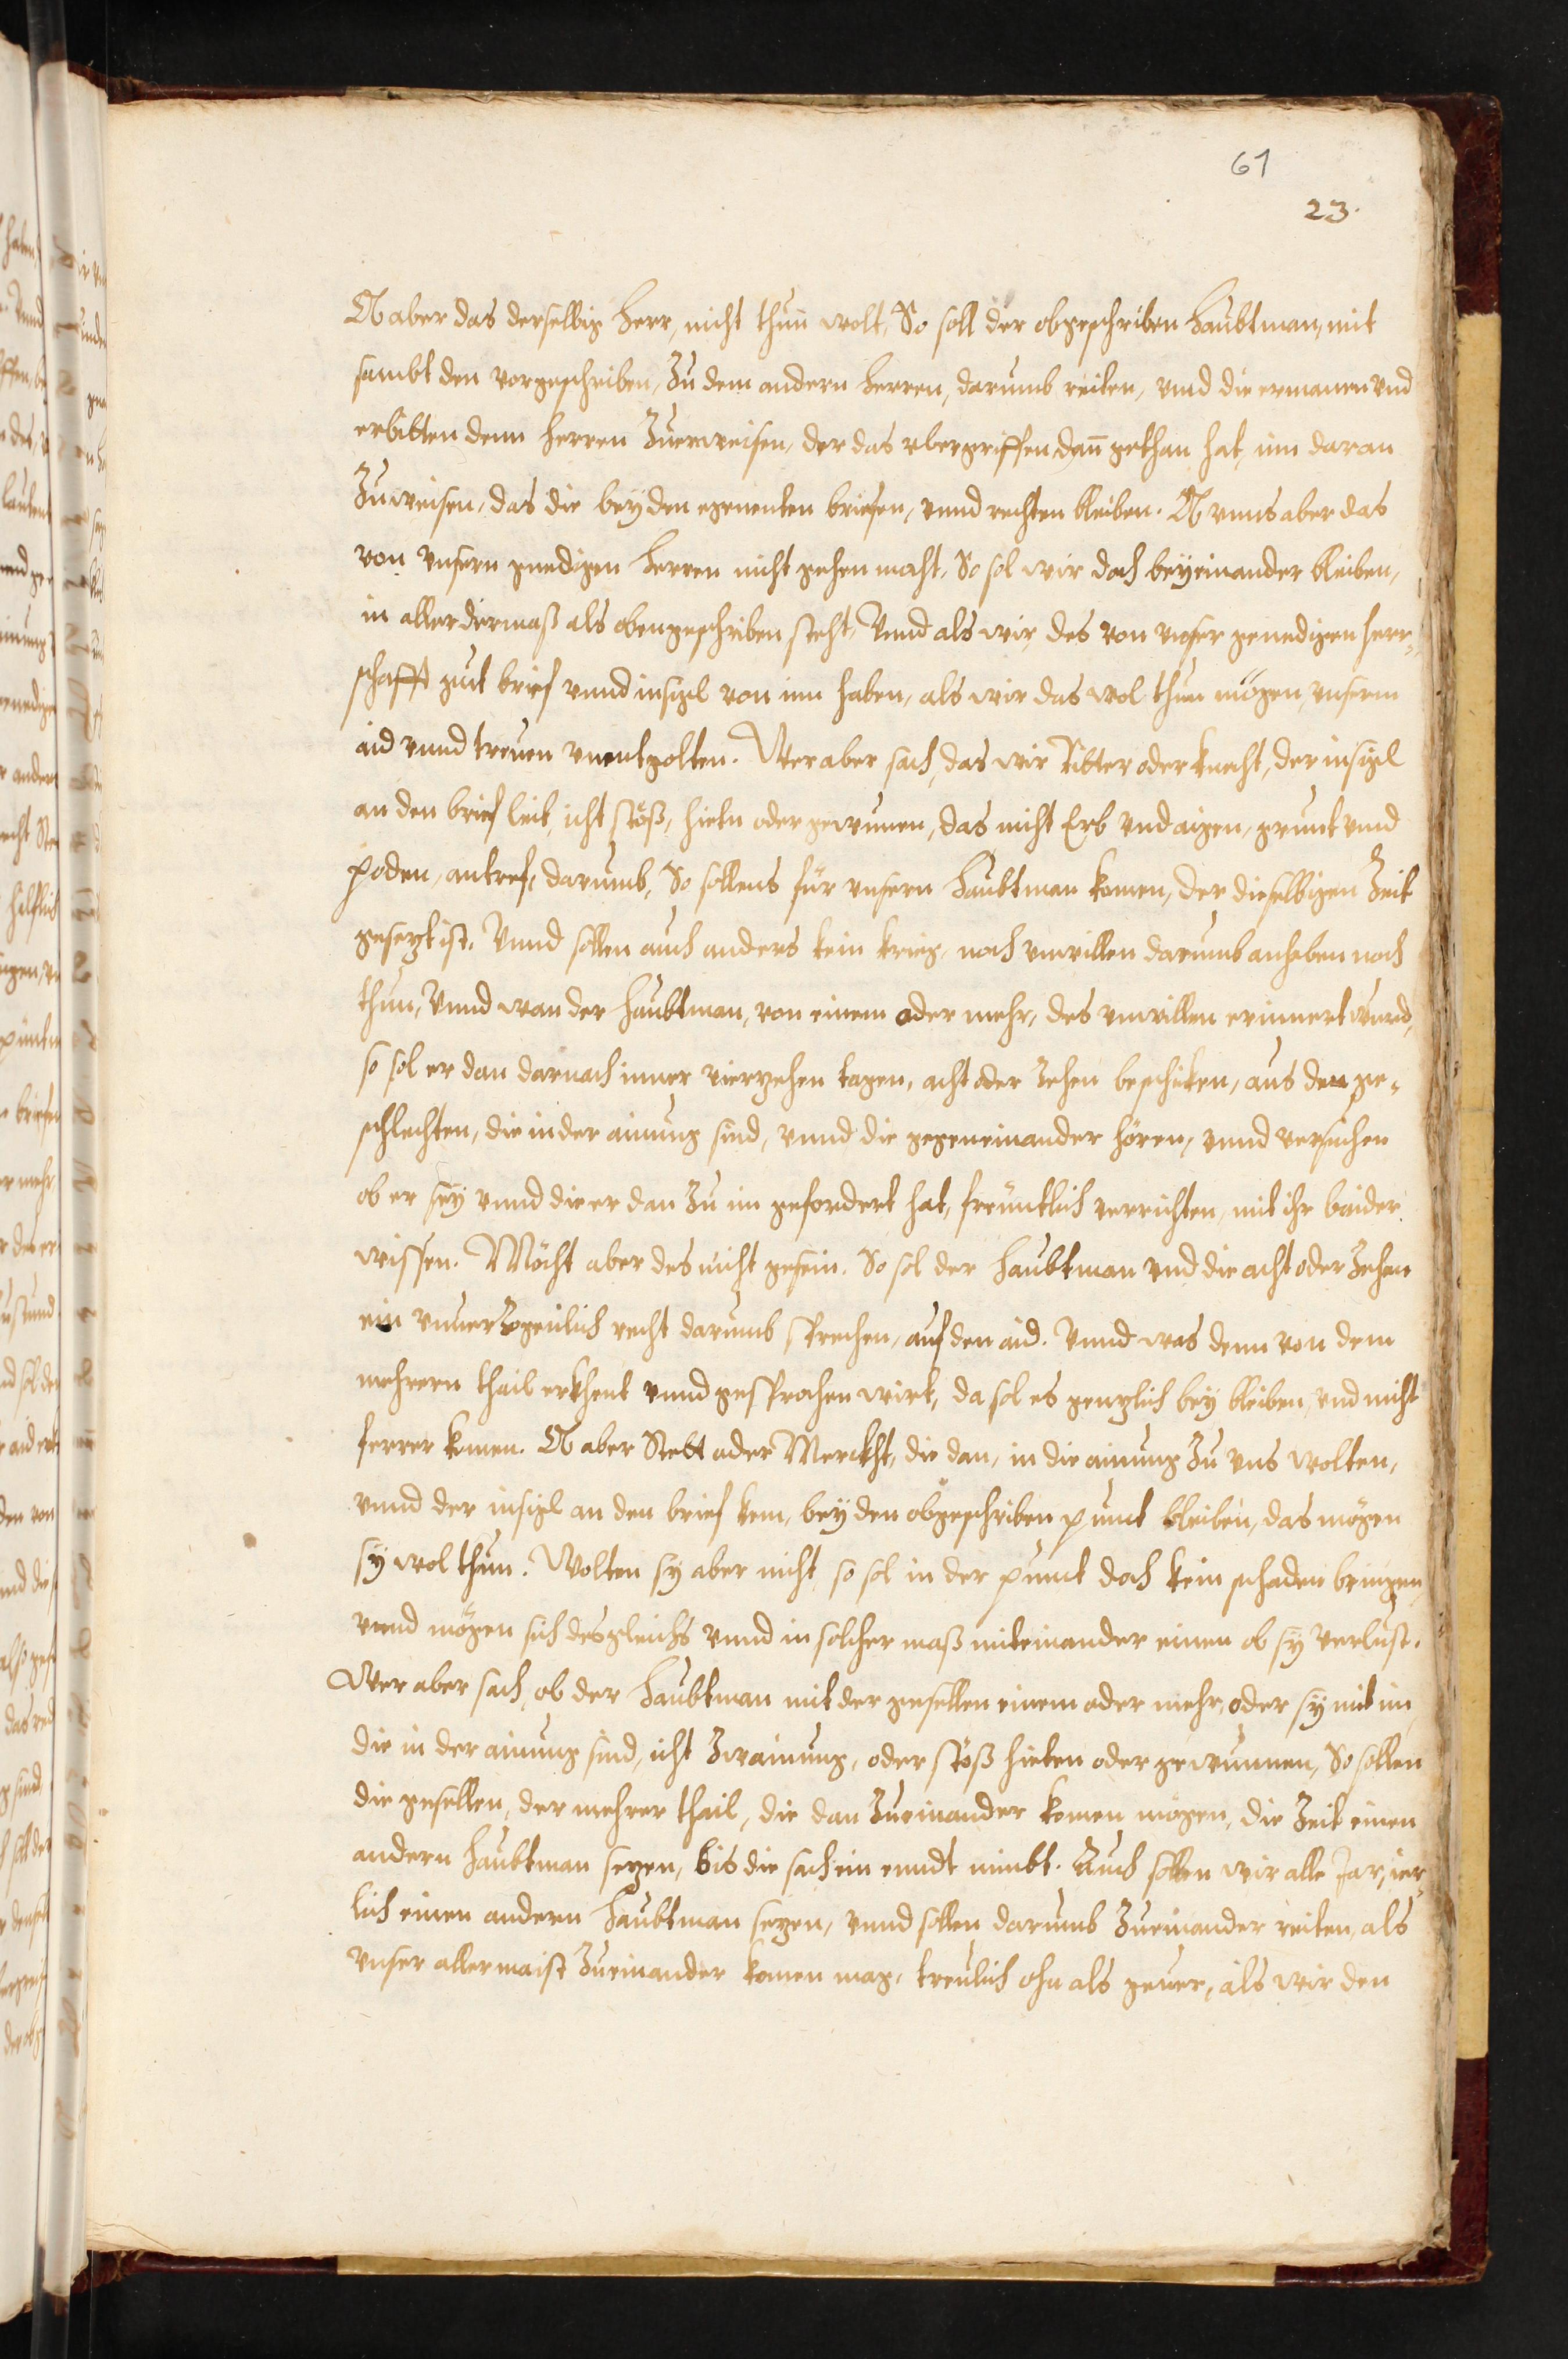 61
23.
Ob aber das derselbig herr, nicht thun wolt, So soll der obgeschriben Haubtman, mit
sambt den vorgeschriben, Zu dem andern herren, darumb reiten, vnd die ermanen vnd
erbitten denn herren Zuerweisen, der das vbergriffen dann gethan hat, inn daran
Zuweisen, das die bey den egenenten briefen, vnnd rechten bleiben. Ob vnns aber das
von vnsern gnedigen herren nicht gehen mocht, So sol wir doch beyeinander bleiben,
in aller dermaß als obengeschriben steht, Vnnd als wir des von vnser genedigen herr-
schafft gut brief vnnd insigel von inn haben, als wir das wol thun mögen, vnserm
aid vnnd treuen vnentgolten. Wer aber sach, das wir Ritter oder knecht, der insigel
an den brief leit, icht stöß, hietn oder gewunnen, das nicht Erb vnd aigen, grunt vnnd
poden, antref, darumb, So sollens für vnsern Haubtman komen, der dieselbigen Zeit
gesezt ist, Vnnd sollen auch anders kein krieg, noch vnwillen darumb anheben noch
thun, Vnnd wan der haubtman, von einem oder mehr, des vnwillen erinnert wurd,
so sol er dan darnach inner vierzehen tagen, acht oder Zehen beschiken, aus den ge-
schlechten, die in der ainung sind, vnnd die gegeneinander hören, vnnd versuchen
ob er sey vnnd die er dan Zu im gefordert hat, freuntlich verrichten, mit ihr baider
wissen. Möcht aber des nicht gesein. So sol der haubtman vnd die acht oder Zehen
ein vnuerZogenlich recht darumb sprechen, auf den aid. Vnnd was denn von dem
mehrern thail erkhent vnnd gesprochen wirt, da sol es genzlich bey bleiben, vnd nicht
ferrer komen. Ob aber Stett oder Merckht, die dan, in die ainung Zu vns wolten,
vnnd der insigel an den brief kem, bey den obgeschriben punct bleiben, das mögen
sy wol thun. Wolten sy aber nicht, so sol in der punct doch kein schaden bringen,
vnnd mögen sich desgleichs vnnd in solcher maß miteinander einen ob sy verlust.
Wer aber sach, ob der Haubtman mit der gesellen einem oder mehr, oder sy mit im,
die in der ainung sind, icht Zwainung, oder stöß hieten oder gewunnen, So sollen
die gesellen, der mehrer thail, die dan Zueinander komen mögen, die Zeit einen
andern haubtman sezen, bis die sach ein enndt nimbt. Auch sollen wir alle Jar, ier-
lich einen andern Haubtman sezen, vnnd sollen darumb Zueinander reiten, als
vnser aller maist Zueinander komen mag, treulich ohn als geuer, als wir den